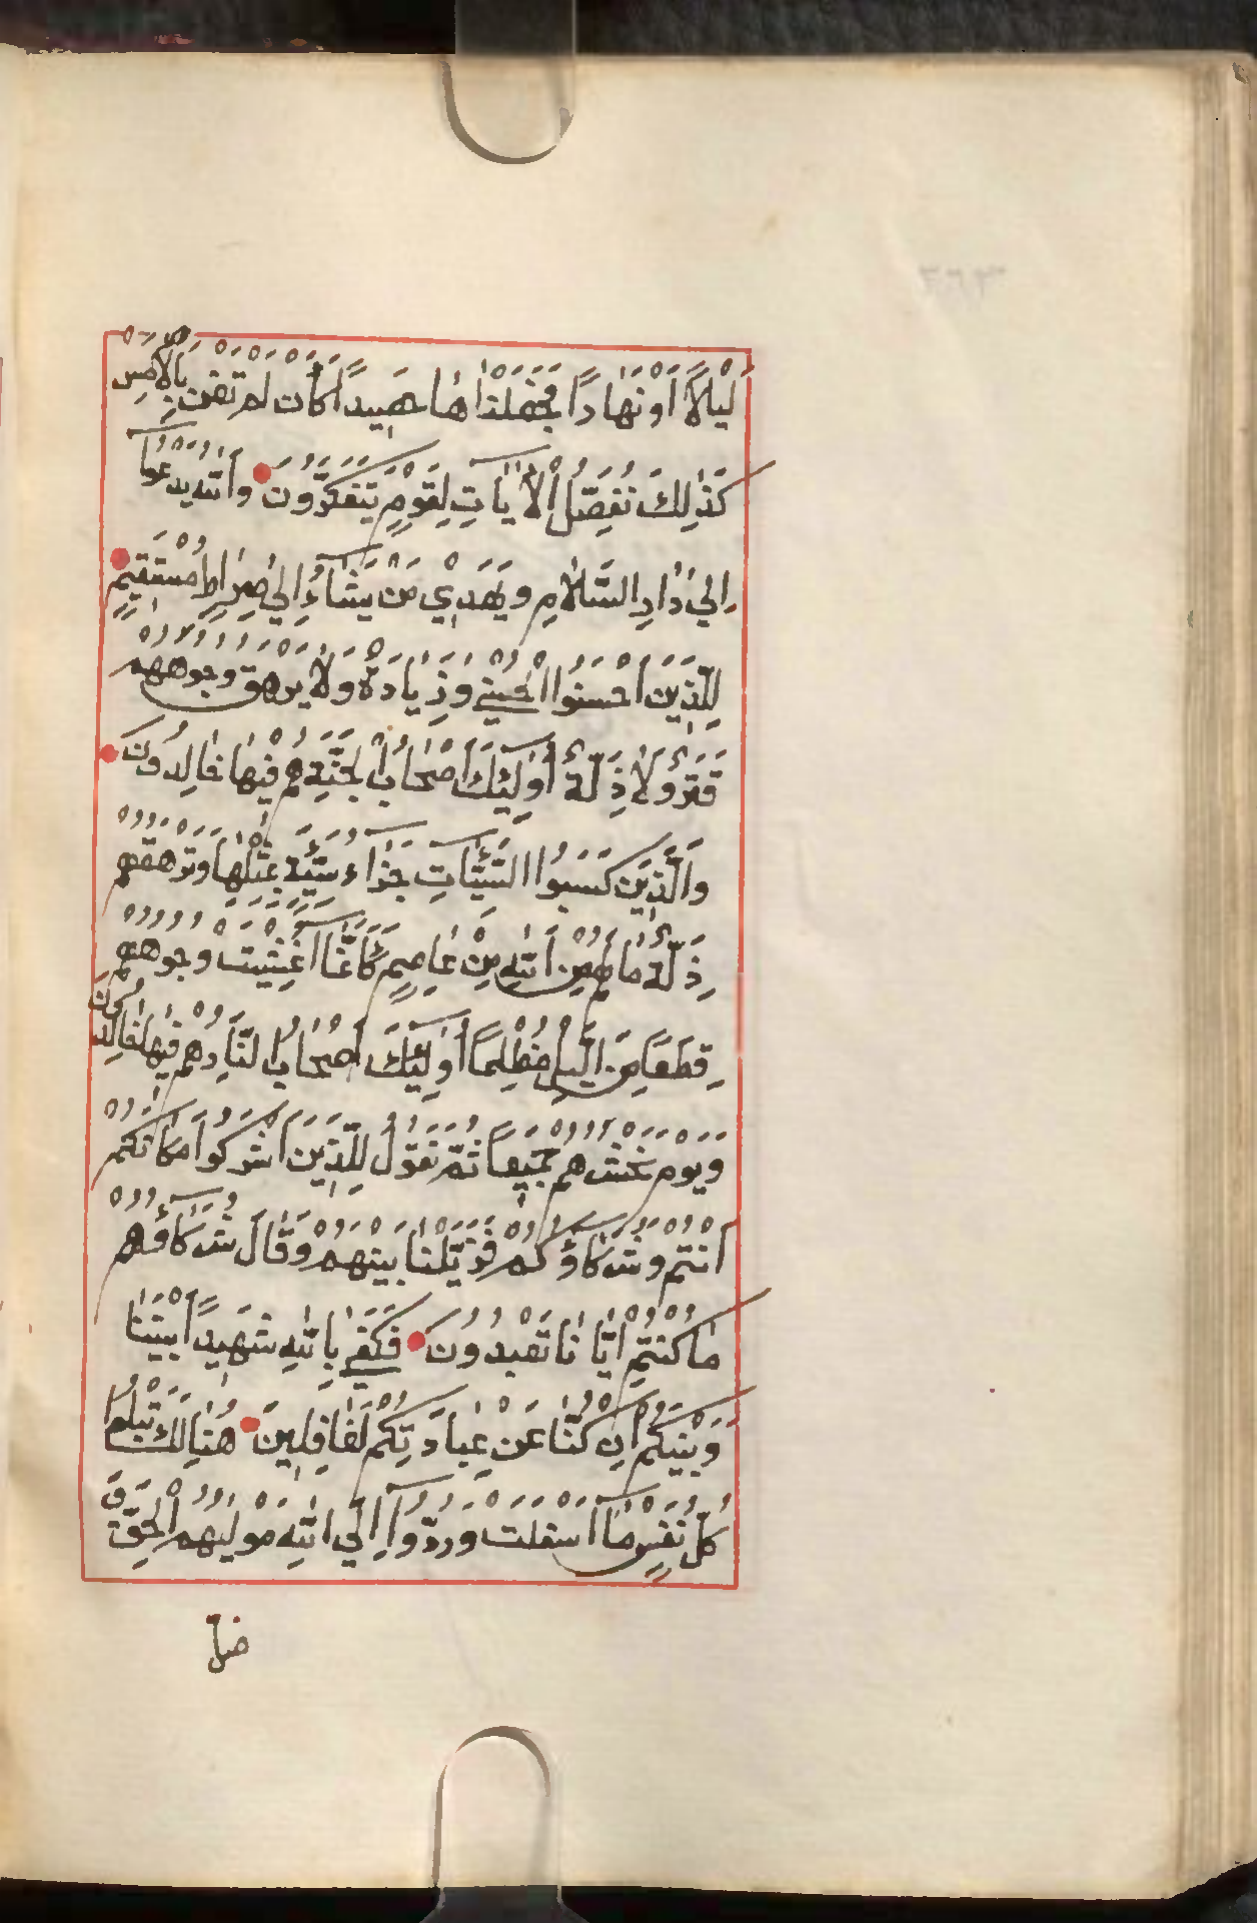 لَيْلًا أَوْ نَهَارًا فَجَعَلْنَاهَا حَصِيدًا كَأَن لَّمْ تَغْنَ بِالْأَمْسِ
كَذٰلِكَ نُفَصِّلُ الْأٰيَاتِ لِقَوْمٍ يَتَفَكَّرُونَ وَاللّٰهُ يَدْعُوا
إِلىٰ دَارِ السَّلَامِ وَيَهْدِي مَنْ يَشَاءُ إِلىٰ صِرَاطٍ مُسْتَقِيمٍ
لِلَّذِينَ أَحْسَنُوا الْحُسْنىٰ وَزِيَادَةٌ وَلَا يَرْهَقُ وُجُوهَهُمْ
قَتَرٌ وَلَا ذِلَّةٌ أُولٰئِكَ أَصْحَابُ الْجَنَّةِ هُمْ فِيهَا خَالِدُونَ
وَالَّذِينَ كَسَبُوا السَّيِّئَاتِ جَزَاءُ سَيِّئَةٍ بِمِثْلِهَا وَتَرْهَقُهُمْ
ذِلَّةٌ مَا لَهُمْ مِنَ اللّٰهِ مِنْ عَاصِمٍ كَأَنَّمَا أُغْشِيَتْ وُجُوهُهُمْ
قِطَعًا مِنَ الَّيْلِ مُظْلِمًا أُولٰئِكَ أَصْحَابُ النَّارِ هُمْ فِيهَا خَالِدُونَ
وَيَوْمَ نَحْشُرُهُمْ جَمِيعًا ثُمَّ نَقُولُ لِلَّذِينَ أَشْرَكُوا مَكَانَكُمْ
أَنْتُمْ وَشُرَكَاؤُكُمْ فَزَيَّلْنَا بَيْنَهُمْ وَقَالَ شُرَكَاؤُهُمْ
مَا كُنْتُمْ إِيَّانَا تَعْبُدُونَ فَكَفىٰ بِاللّٰهِ شَهِيدًا بَيْنَنَا
وَبَيْنَكُمْ إِنْ كُنَّا عَنْ عِبَادَتِكُمْ لَغَافِلِينَ هُنَالِكَ تَبْلُوا
كُلُّ نَفْسٍ مَا أَسْفَلَتْ وَرُدُّوا إِلَى اللّٰهِ مَوْلٰيهُمُ الْحَقِّ